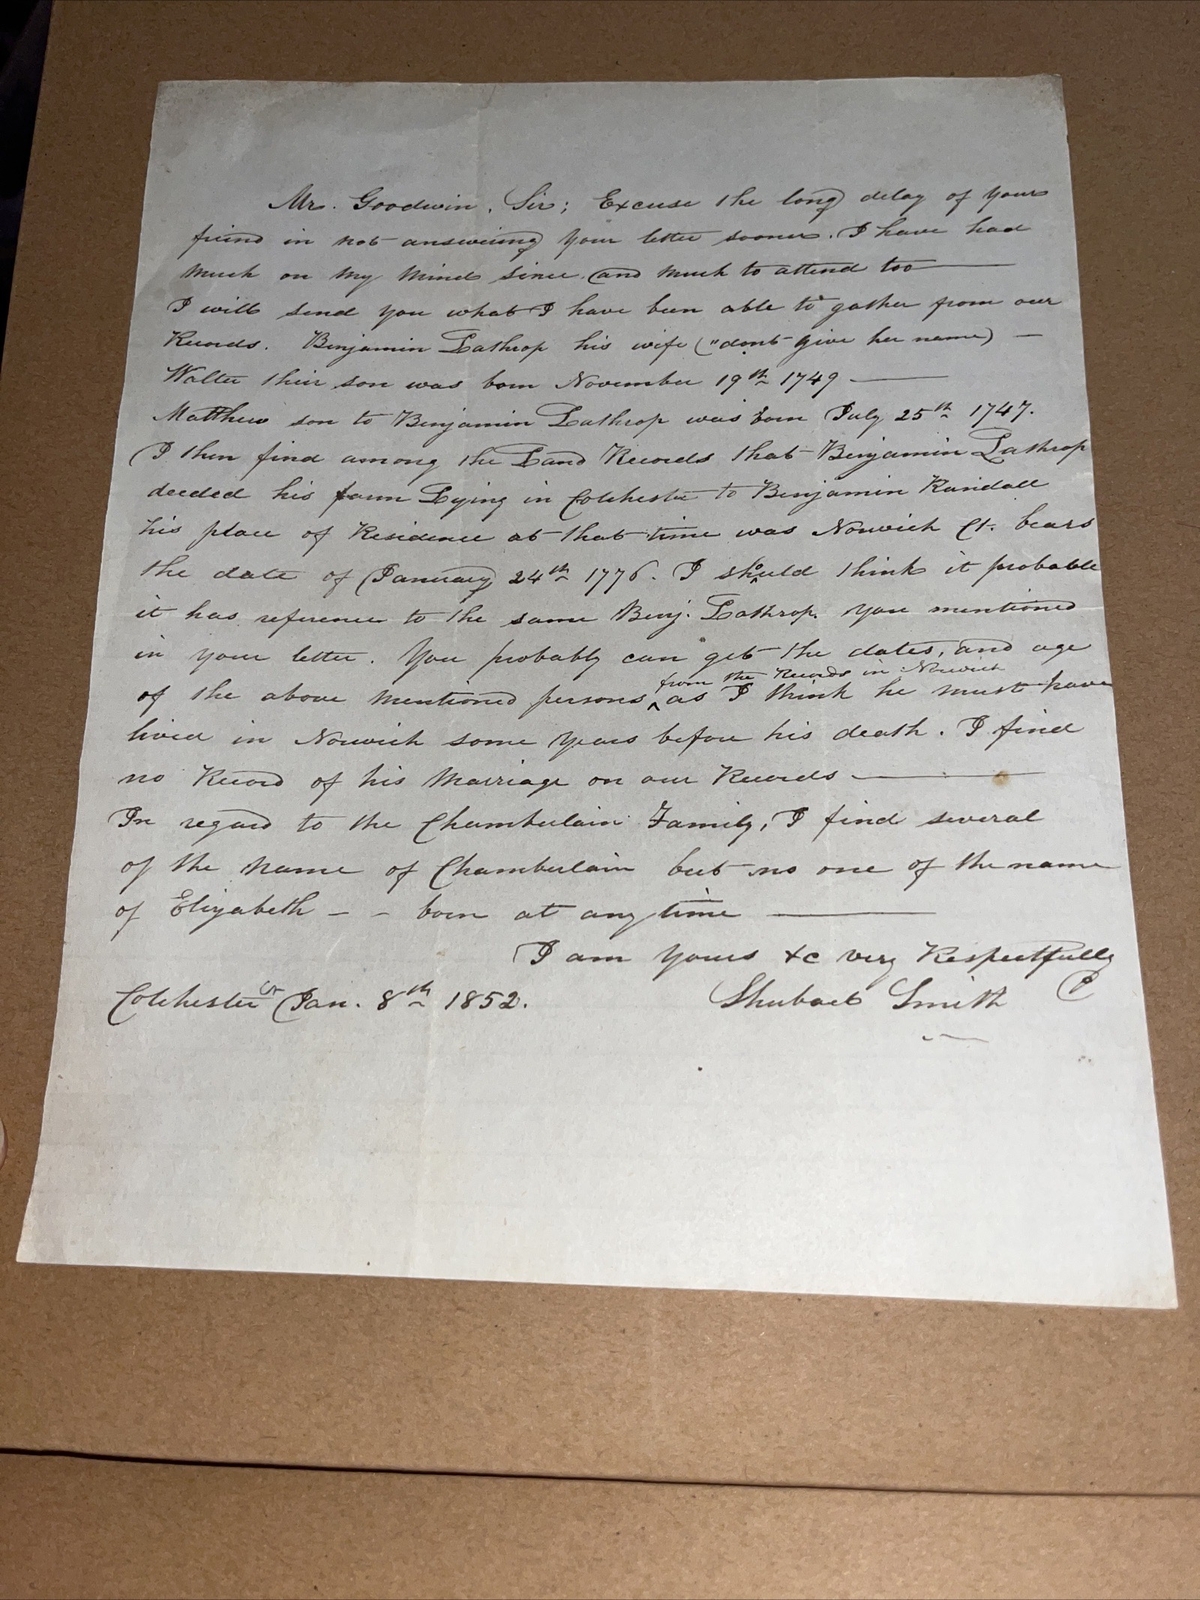 Mr. Goodwin, Sir; Excuse the long delay of your
friend in not answering your letter sooner. I have had
much on my mind since, and much to attend too —
I will send you what I have been able to gather from our
Records. Benjamin Lathrop his wife ("dont give her name) —
Walter their son was born November 19th 1749 —
Matthew son to Benjamin Lathrop was born July 25th 1747.
I then find among the Land Records that Benjamin Lathrop
deeded his farm Lying in Colchester to Benjamin Randall
his place of Residence at that time was Norwich Ct. bears
the date of January 24th 1776. I should think it probable
it has reference to the same Benj. Lathrop. you mentioned
in your letter. You probably can get the dates, and age
from the Records in Norwich
of the above mentioned persons, ^ as I think he must have
lived in Norwich some years before his death. I find
no Record of his Marriage on our Records —
In regard to the Chamberlain Family, I find several
of the name of Chamberlain but no one of the name
of Elizabeth - - born at any time —
I am yours &c very Respectfully
Colchester Ct Jan. 8th 1852. Shubael Smith